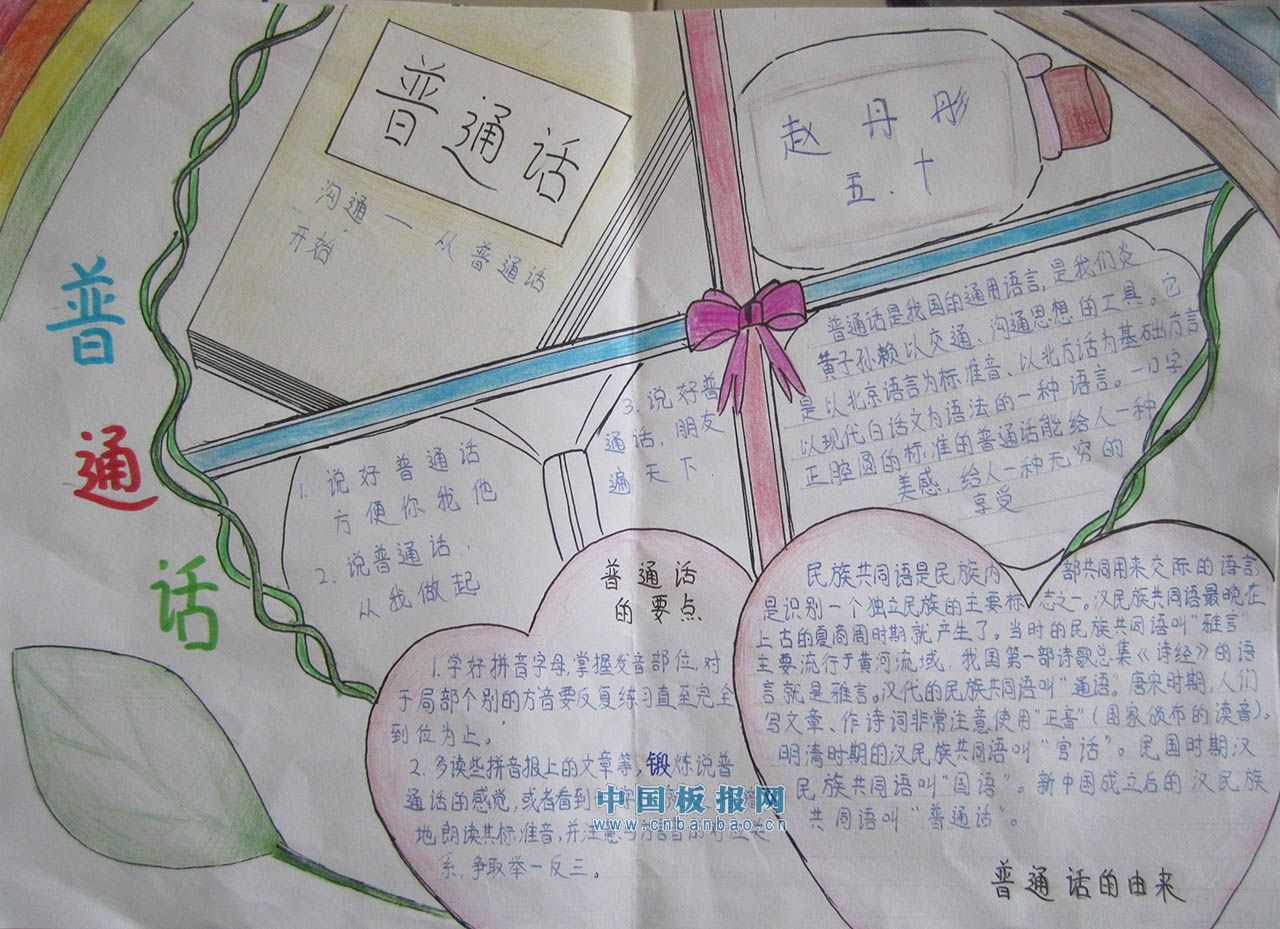 普通话
沟通一从普通话
开始
赵丹彤
五.十
普
通
话
普通话是我国的通用语言,是我们炎
黄子孙赖以交通、沟通思想的工具。它
是以北京语言为标准音、以北方话为基础方言
以现代白话文为语法的一种语言。一口字
正腔圆的标准的普通话能给人一种
美感,给人一种无穷的
享受
1. 说好普通话
方便你我他
2. 说普通话,
从我做起
3. 说好普
通话,朋友
遍天下.
普通话
的要点
1.学好拼音字母,掌握发音部位,对
于局部个别的方音要反复练习直至完全
到位为止。
2. 多读些拼音报上的文章等,锻炼说普
通话的感觉,或者看到
地朗读其标准音,并注意与方言
系,争取举一反三。
民族共同语是民族内部共同用来交际的语言
是识别一个独立民族的主要标志之一。汉民族共同语最晚在
上古的夏商周时期就产生了。当时的民族共同语叫"雅言"
主要流行于黄河流域,我国第一部诗歌总集《诗经》的语
言就是雅言。汉代的民族共同语叫"通语。唐宋时期,人们
写文章、作诗词非常注意使用"正音"(国家颁布的读音)。
明清时期的汉民族共同语叫"官话"。民国时期汉
民族共同语叫"国语"。新中国成立后的汉民族
共同语叫"普通话"。
普通话的由来
中国板报网
www.cnbanbao.cn